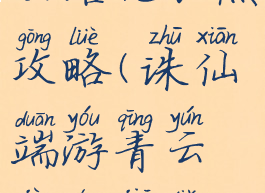 gōng lüè zhū xiān
攻略(诛仙
duān yóu qīng yún
端游青云